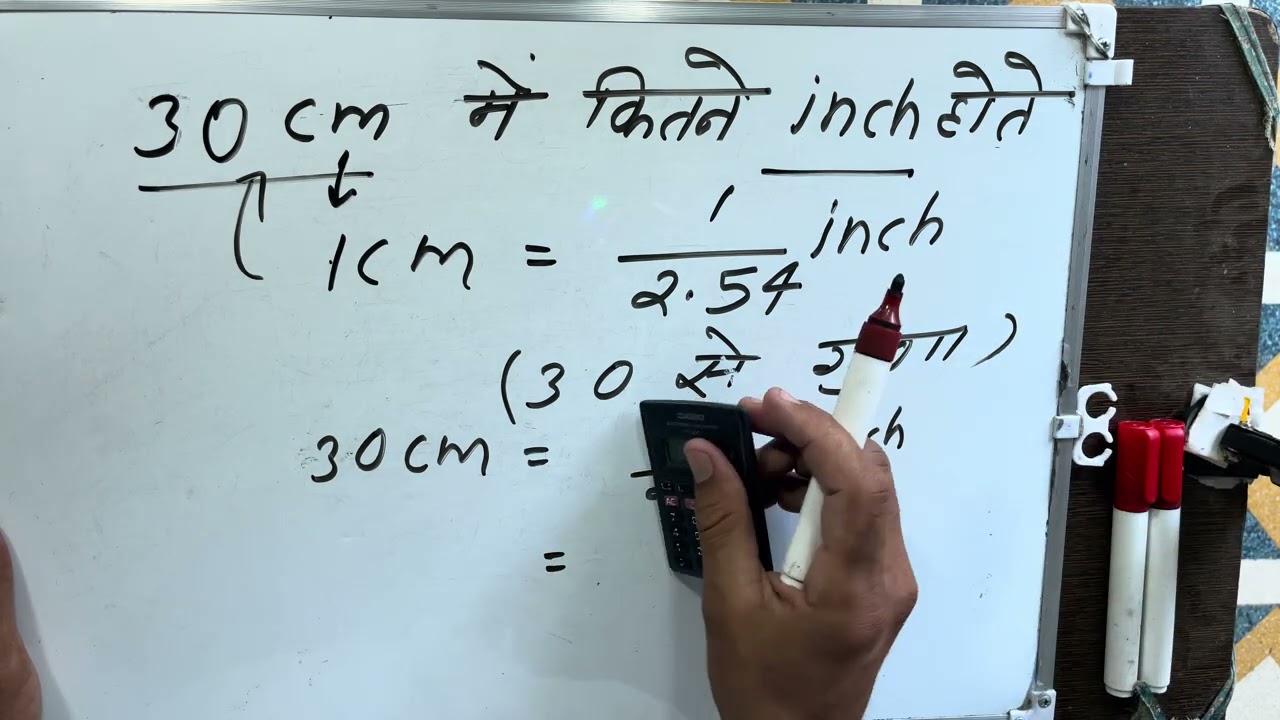 30 cm में कितने inch होते
1cm = 1/2.54 inch
(30 से गुणा)
30cm =
=
CASIO